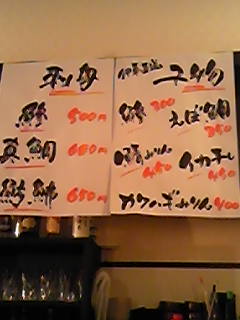 刺身
鯵 500円
真鯛
650円
干物
鯵 300
えぼ鯛 350
鯖みりん 450
イカ干し 450
カワハギみりん 400